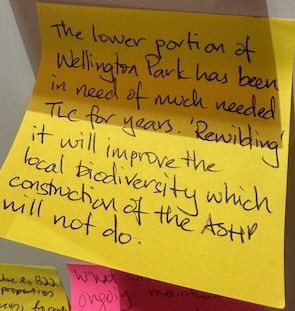 The lower portion of
Wellington Park has been
in need of much needed
TLC for years. 'Rewilding'
it will improve the
local biodiversity which
construction of the ASHP
will not do.
to B22
properties
What